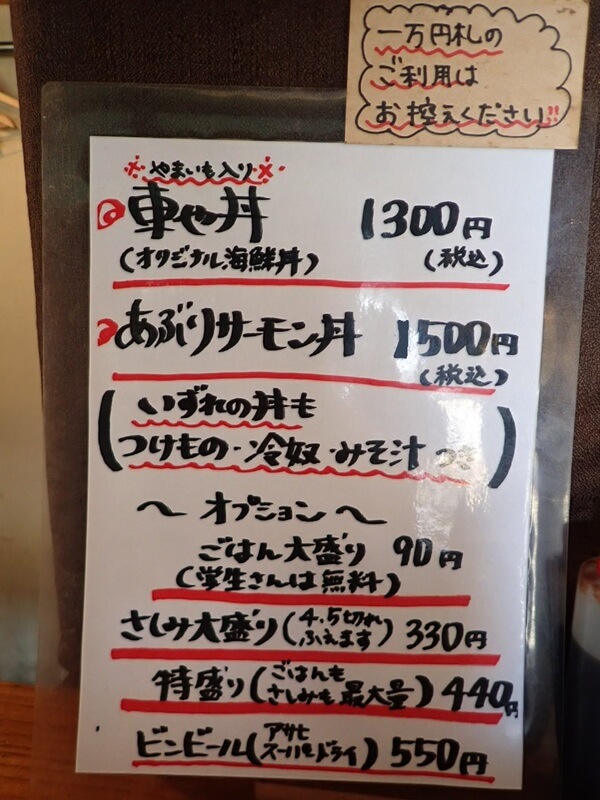 一万円札の
ご利用は
お控えください!!
※やまいも入り※
車や丼 1300円
(オリジナル海鮮丼) (税込)
あぶりサーモン丼 1500円
(税込)
(いずれの丼も
つけもの・冷奴・みそ汁つき)
〜オプション〜
ごはん大盛り 90円
(学生さんは無料)
さしみ大盛り(4.5切れ
ふえます) 330円
特盛り(ごはんも
さしみも最大量) 440円
ビンビール(アサヒ
スーパードライ) 550円